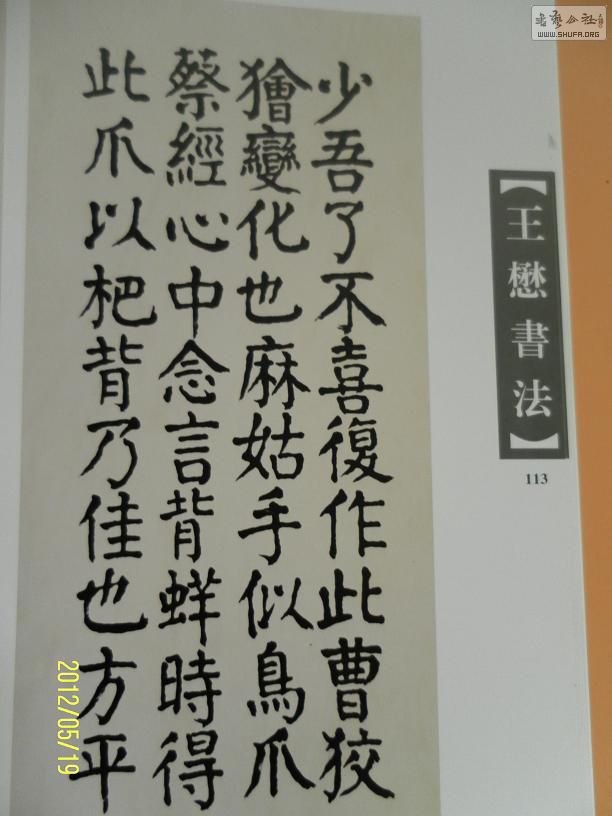 少吾了不喜復作此曹狡
獪變化也麻姑手似鳥爪
蔡經心中念言背蛘時得
此爪以杷背乃佳也方平
【王懋書法】
113
书艺公社
WWW.SHUFA.ORG
2012/05/19